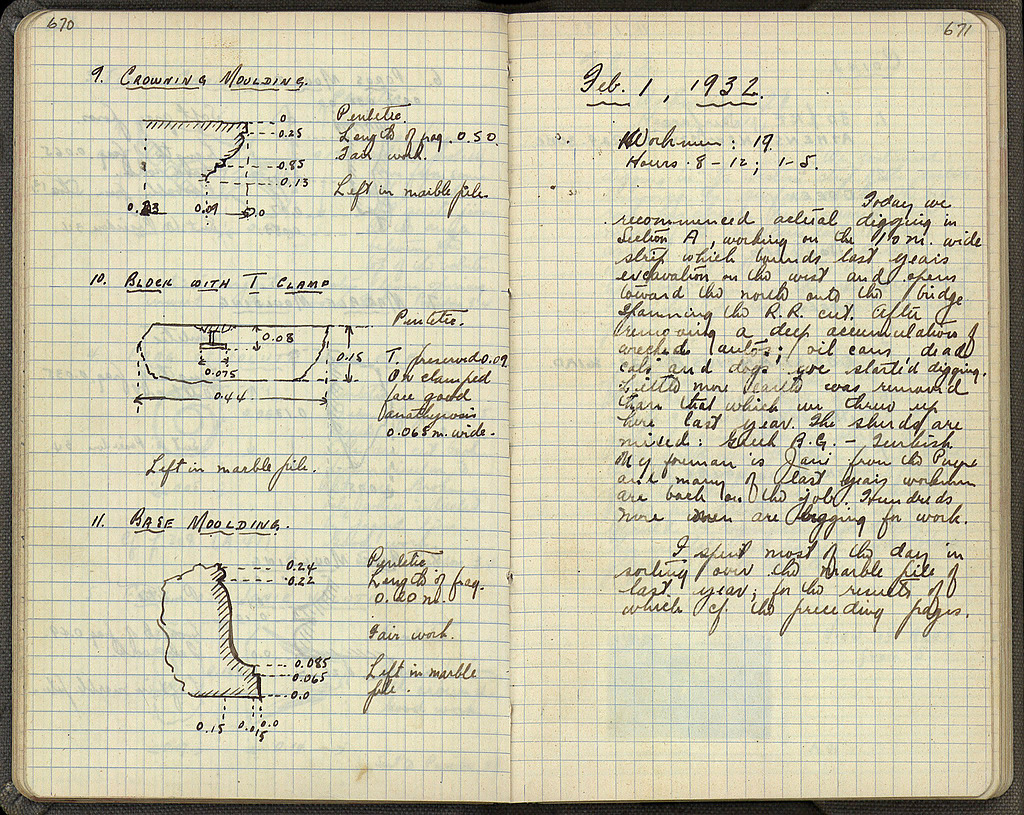 670
9. CROWNING MOULDING.
Pentelic.
Length of frag. 0.50.
Fair work.
Left in marble pile.
0
0.25
0.85
0.13
0.09
0.0
10. BLOCK WITH T CLAMP
Pentelic.
T. preserved 0.09.
On clamped
face good
anathyrosis
0.065 m. wide.
0.08
0.075
0.15
0.44
Left in marble pile.
11. BASE MOULDING.
Pentelic
Length of frag.
0.20 m.
Fair work.
Left in marble
pile.
0.24
0.22
0.085
0.065
0.0
0.15 0.015 0.0
671
Feb. 1, 1932.
Workmen: 19.
Hours 8-12; 1-5.
Today we
recommenced actual digging in
Section A, working on the 10 m. wide
strip which bounds last years
excavation on the west and opens
toward the north onto the bridge
spanning the R.R. cut. After
removing a deep accumulation of
wrecked autos; oil cans, dead
cats and dogs we started digging.
Little more earth was removed
than that which we threw up
here last year. The sherds are
mixed: Greek B.G. - Turkish.
My foreman is Jani from the Pnyx
and many of last years workmen
are back on the job. Hundreds
more men are begging for work.
I spent most of the day in
sorting over the marble pile of
last year; for the results of
which cf. the preceding pages.